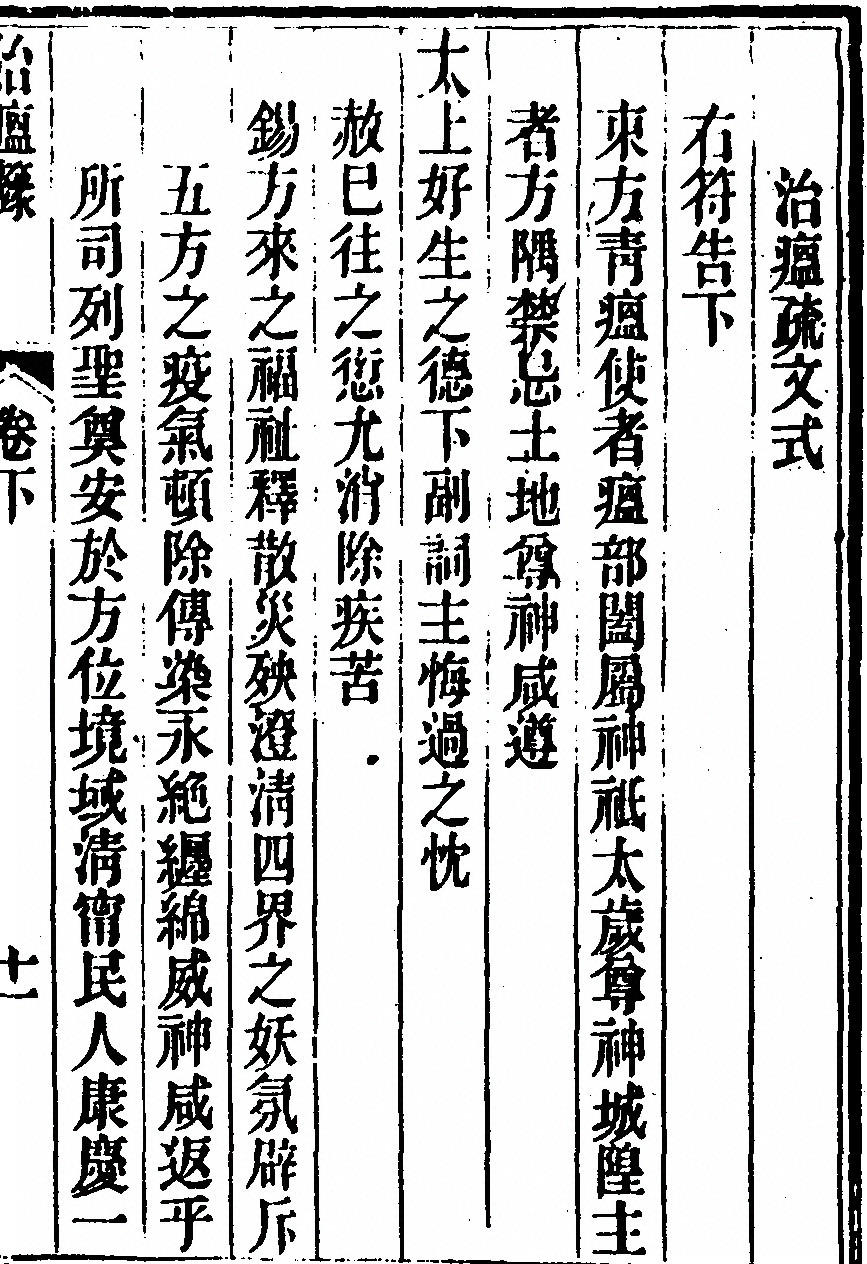 治瘟疏文式
右符告下
東方青瘟使者瘟部闔屬神祇太歲尊神城隍主
者方隅禁忌土地尊神咸遵
太上好生之德下副詞主悔過之忱
赦已往之愆尤消除疾苦
錫方來之福祉釋散災殃澄淸四界之妖氛辟斥
五方之疫氣頓除傳染永絶纏綿威神咸返乎
所司列聖奠安於方位境域淸甯民人康慶一
治瘟
卷下
十一